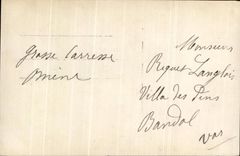 grosse carresse
Monsieur
Riquet Langlois
Villa des Pins
Bandol
Var